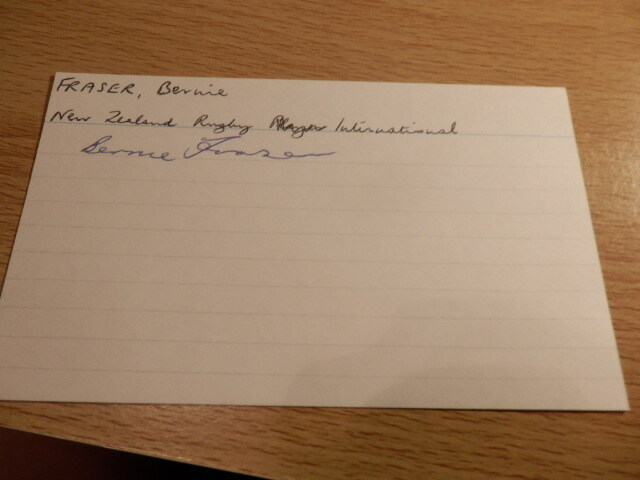 FRASER, Bernie
New Zealand Rugby Player International
Bernie Fraser